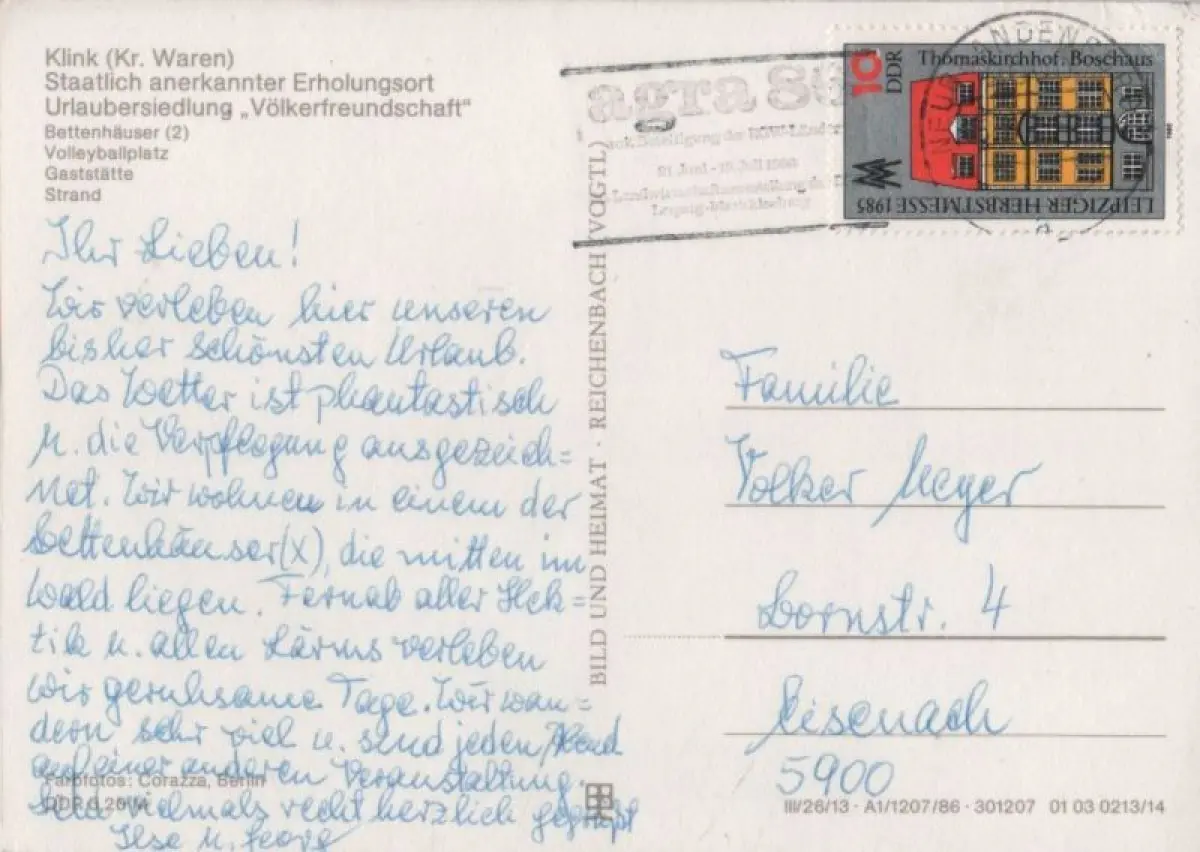 Klink (Kr. Waren)
Staatlich anerkannter Erholungsort
Urlaubersiedlung „Völkerfreundschaft"
Bettenhäuser (2)
Volleyballplatz
Gaststätte
Strand
Ihr Lieben!
Wir verleben hier unseren
bisher schönsten Urlaub.
Das Wetter ist phantastisch
u. die Verpflegung ausgezeich=
net. Wir wohnen in einem der
Bettenhäuser (x), die mitten im
Wald liegen. Fernab aller Hek=
tik u. allen Lärms verleben
wir geruhsame Tage. Wir wan=
dern sehr viel u. sind jeden Abend
auf einer anderen Veranstaltung.
Seid vielmals recht herzlich gegrüßt
Ilse u. Georg
Farbfotos: Corazza, Berlin
DDR 0,20 M
BILD UND HEIMAT · REICHENBACH (VOGTL)
agra
Leipzig-Markkleeberg
10
DDR
Thomaskirchhof: Boschaus
LEIPZIGER HERBSTMESSE 1985
MM
Familie
Volker Meyer
Bornstr. 4
Eisenach
5900
III/26/13 · A1/1207/86 · 301207 01 03 0213/14